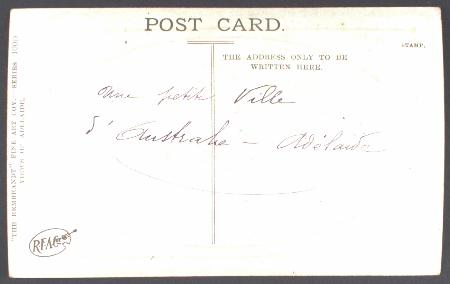 POST CARD.
STAMP.
THE ADDRESS ONLY TO BE
WRITTEN HERE.
une petite Ville
d'Australie - Adélaïde
"THE REMBRANDT" FINE ART COY. SERIES
VIEWS OF ADELAIDE.